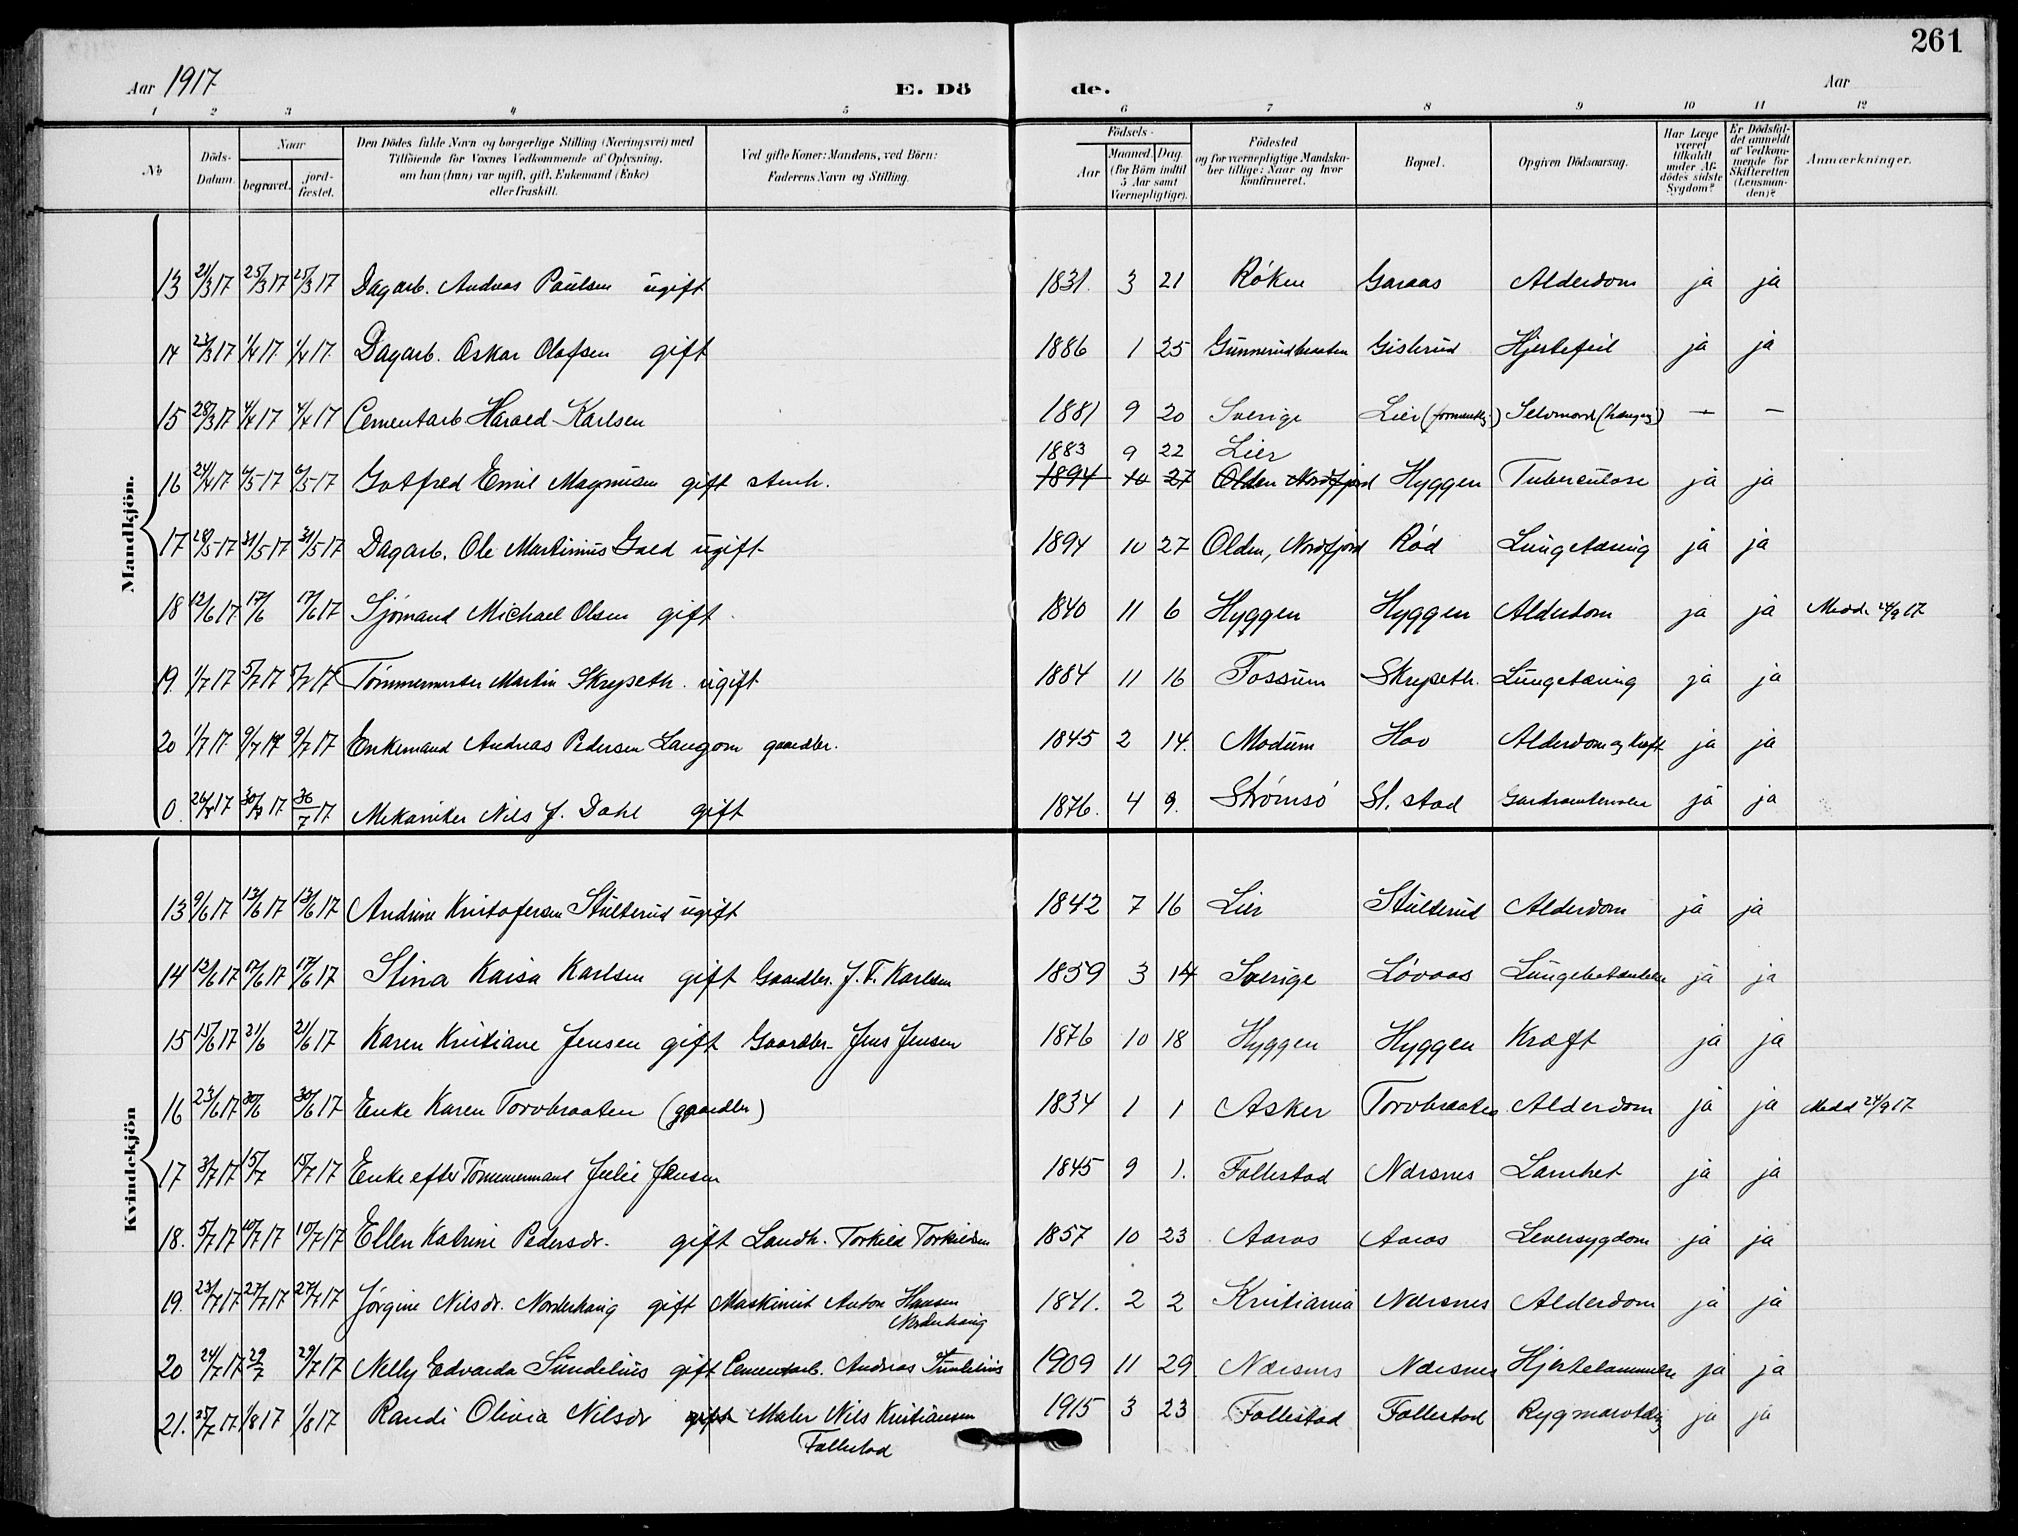 261
Aar 1917 E. Dö de. Aar
1 2 3 4 5 6 7 8 9 10 11 12
No
Döds-Datum.
Naar
begravet.
jord-fæstet.
Den Dödes fulde Navn og borgerlige Stilling (Næringsvei) med
Tilföiende for Voxnes Vedkommende af Oplysning,
om han (hun) var ugift, gift, Enkemand (Enke)
eller fraskilt.
Ved gifte Koner: Mandens, ved Börn:
Faderens Navn og Stilling.
Födsels-
Aar
Maaned. Dag
(for Börn indtil
5 Aar samt
Værnepligtige).
Födested
og for værnepligtige Mandska-
ber tillige: Naar og hvor
konfirmeret.
Bopæl.
Opgiven Dödsaarsag.
Har Læge
været
tilkaldt
under Af-
dödes sidste
Sygdom?
Er Dödsfal-
det anmeldt
af Vedkom-
mende for
Skifteretten
(Lensman-
den)?
Anmærkninger.
Mandkjön.
13 21/3 17 25/3 17 25/3 17 Dagarb. Andreas Paulsen ugift 1831. 3 21 Røken Garaas Alderdom ja ja
14 23/3 17 1/4 17 1/4 17. Dagarb. Oskar Olafsen gift 1886 1 25 Gunnerudbraaten Gislerud Hjertefeil ja ja
15 28/3 17 4/4 17 4/4 17 Cementarb. Harald Karlsen 1881 9 20 Sverige Lier Selvmord — —
1883 9 22 Lier
16 24/4 17 6/5 17 6/5 17 Gotfred Emil Magnusen gift 1894 10 27 Olden Nordfjord Hyggen Tuberculose ja ja
17 28/5 17 31/5 17 31/5 17 Dagarb. Ole Martinius Gald ugift 1894 10 27 Olden, Nordfjord Rød Lungetæring ja ja
18 12/6 17 17/6 17/6 17 Sjømand Michael Olsen gift 1840 11 6 Hyggen Hyggen Alderdom ja ja Medd. 24/9 17
19. 1/7 17 5/7 17 5/7 17 Tømmermester Martin Skrypeth. ugift 1884 11 16 Fossum Skrypeth. Lungetæring ja ja
20 1/7 17. 9/7 17 9/7 17 Enkemand Andreas Pedersen Langom gaardbr. 1845 2 14. Modum Hov Alderdom og Kræft ja ja
0. 26/7 17 30/7 17 30/7 17 Mekaniker Nils J. Dahl gift 1876. 4 9. Strømsø St. stad ja ja
Kvindekjön
13 9/6 17 13/6 17 13/6 17 Andrine Kristofersen Stulterud ugift 1842 7 16 Lier Stulterud Alderdom ja ja
14 12/6 17 17/6 17 17/6 17 Stina Kaisa Karlsen gift Gaardbr. J. F. Karlsen 1859 3 14 Sverige Løvaas Lungebetændelse ja ja
15 15/6 17 21/6 21/6 17 Karen Kristiane Jensen gift Gaardbr. Jens Jensen 1876 10 18 Hyggen Hyggen Kræft ja ja
16 23/6 17 30/6 30/6 17 Enke Karen Torvbraaten (gaardbr) 1834 1 1 Asker Torvbraaten Alderdom ja ja Medd 24/9 17
17 3/7 17 15/7 15/7 17 Enke efter Tømmermand Julie Jensen 1845 9 1. Follestad Nærsnes Lamhet ja ja
18. 5/7 17 10/7 17 10/7 17 Ellen Katrine Pedersdr. gift Landh. Torkild Torkildsen 1857 10 23 Aaros Aaros Leversygdom ja ja
19. 23/7 17 27/7 17 27/7 17 Jørgine Nilsdr. Norderhaug gift Maskinist Anton Hansen 1841. 2 2 Kristiania Nærsnes Alderdom ja ja
Norderhaug
20 24/7 17 29/7 29/7 17 Nelly Edvarda Sundelius gift Cementarb. Andreas Sundelius 1909 11 29. Nærsnes Nærsnes Hjertelammelse ja ja
21. 25/7 17 1/8 17 1/8 17 Randi Olivia Nilsdr gift Maler Nils Kristiansen 1915 3 23 Follestad Follestad ja ja
Follestad